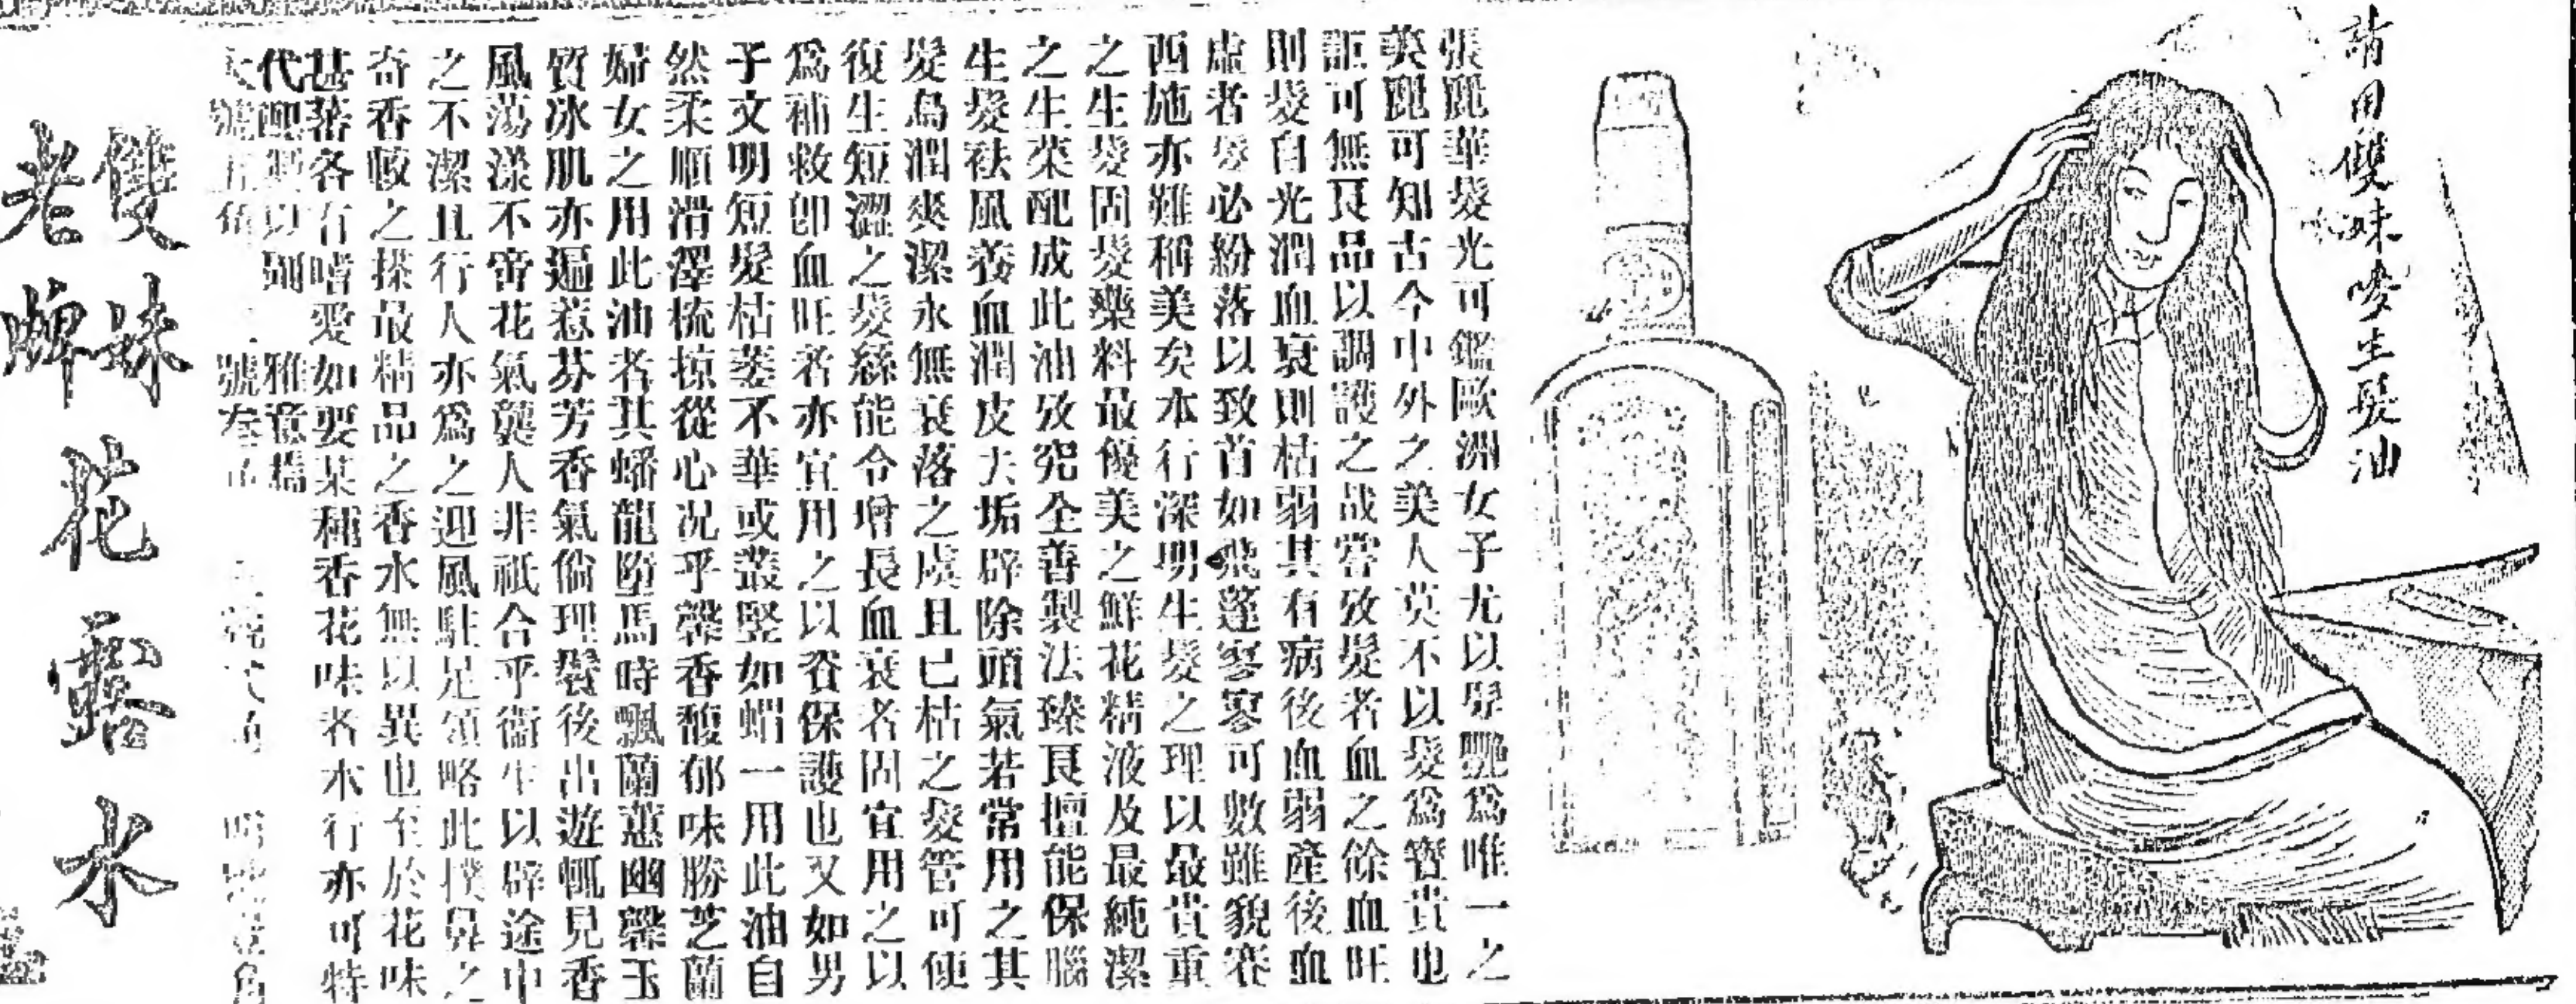 請用雙妹嘜生髮油
張麗華髮光可鑑歐洲女子尤以髮艷爲唯一之
美麗可知古今中外之美人莫不以髮爲寶貴也
詎可無良品以調護之哉嘗攷髮者血之餘血旺
則髮自光潤血衰則枯弱其有病後血弱產後血
虛者髮必紛落以致首如飛蓬寥寥可數雖貌賽
西施亦難稱美矣本行深明生髮之理以最貴重
之生髮固髮藥料最優美之鮮花精液及最純潔
之生菜配成此油攷究全善製法臻良擅能保腦
生髮袪風養血潤皮去垢辟除頭氣若常用之其
髮烏潤爽潔永無衰落之虞且已枯之髮管可使
復生短澀之髮絲能令增長血衰者固宜用之以
爲補救卽血旺者亦宜用之以資保護也又如男
子文明短髮枯萎不華或叢竪如蝟一用此油自
然柔順滑澤梳掠從心况乎馨香馥郁味勝芝蘭
婦女之用此油者其蟠龍墮馬時飄蘭蕙幽馨玉
質冰肌亦遍惹芬芳香氣倘理鬢後出遊輒見香
風蕩漾不啻花氣襲人非祇合乎衞生以辟途中
之不潔且行人亦爲之迎風駐足領略此撲鼻之
奇香較之搽最精品之香水無以異也至於花味
甚蕃各有嗜愛如要某種香花味者本行亦可特
代配製以別 雅意
雙妹
老牌花露水